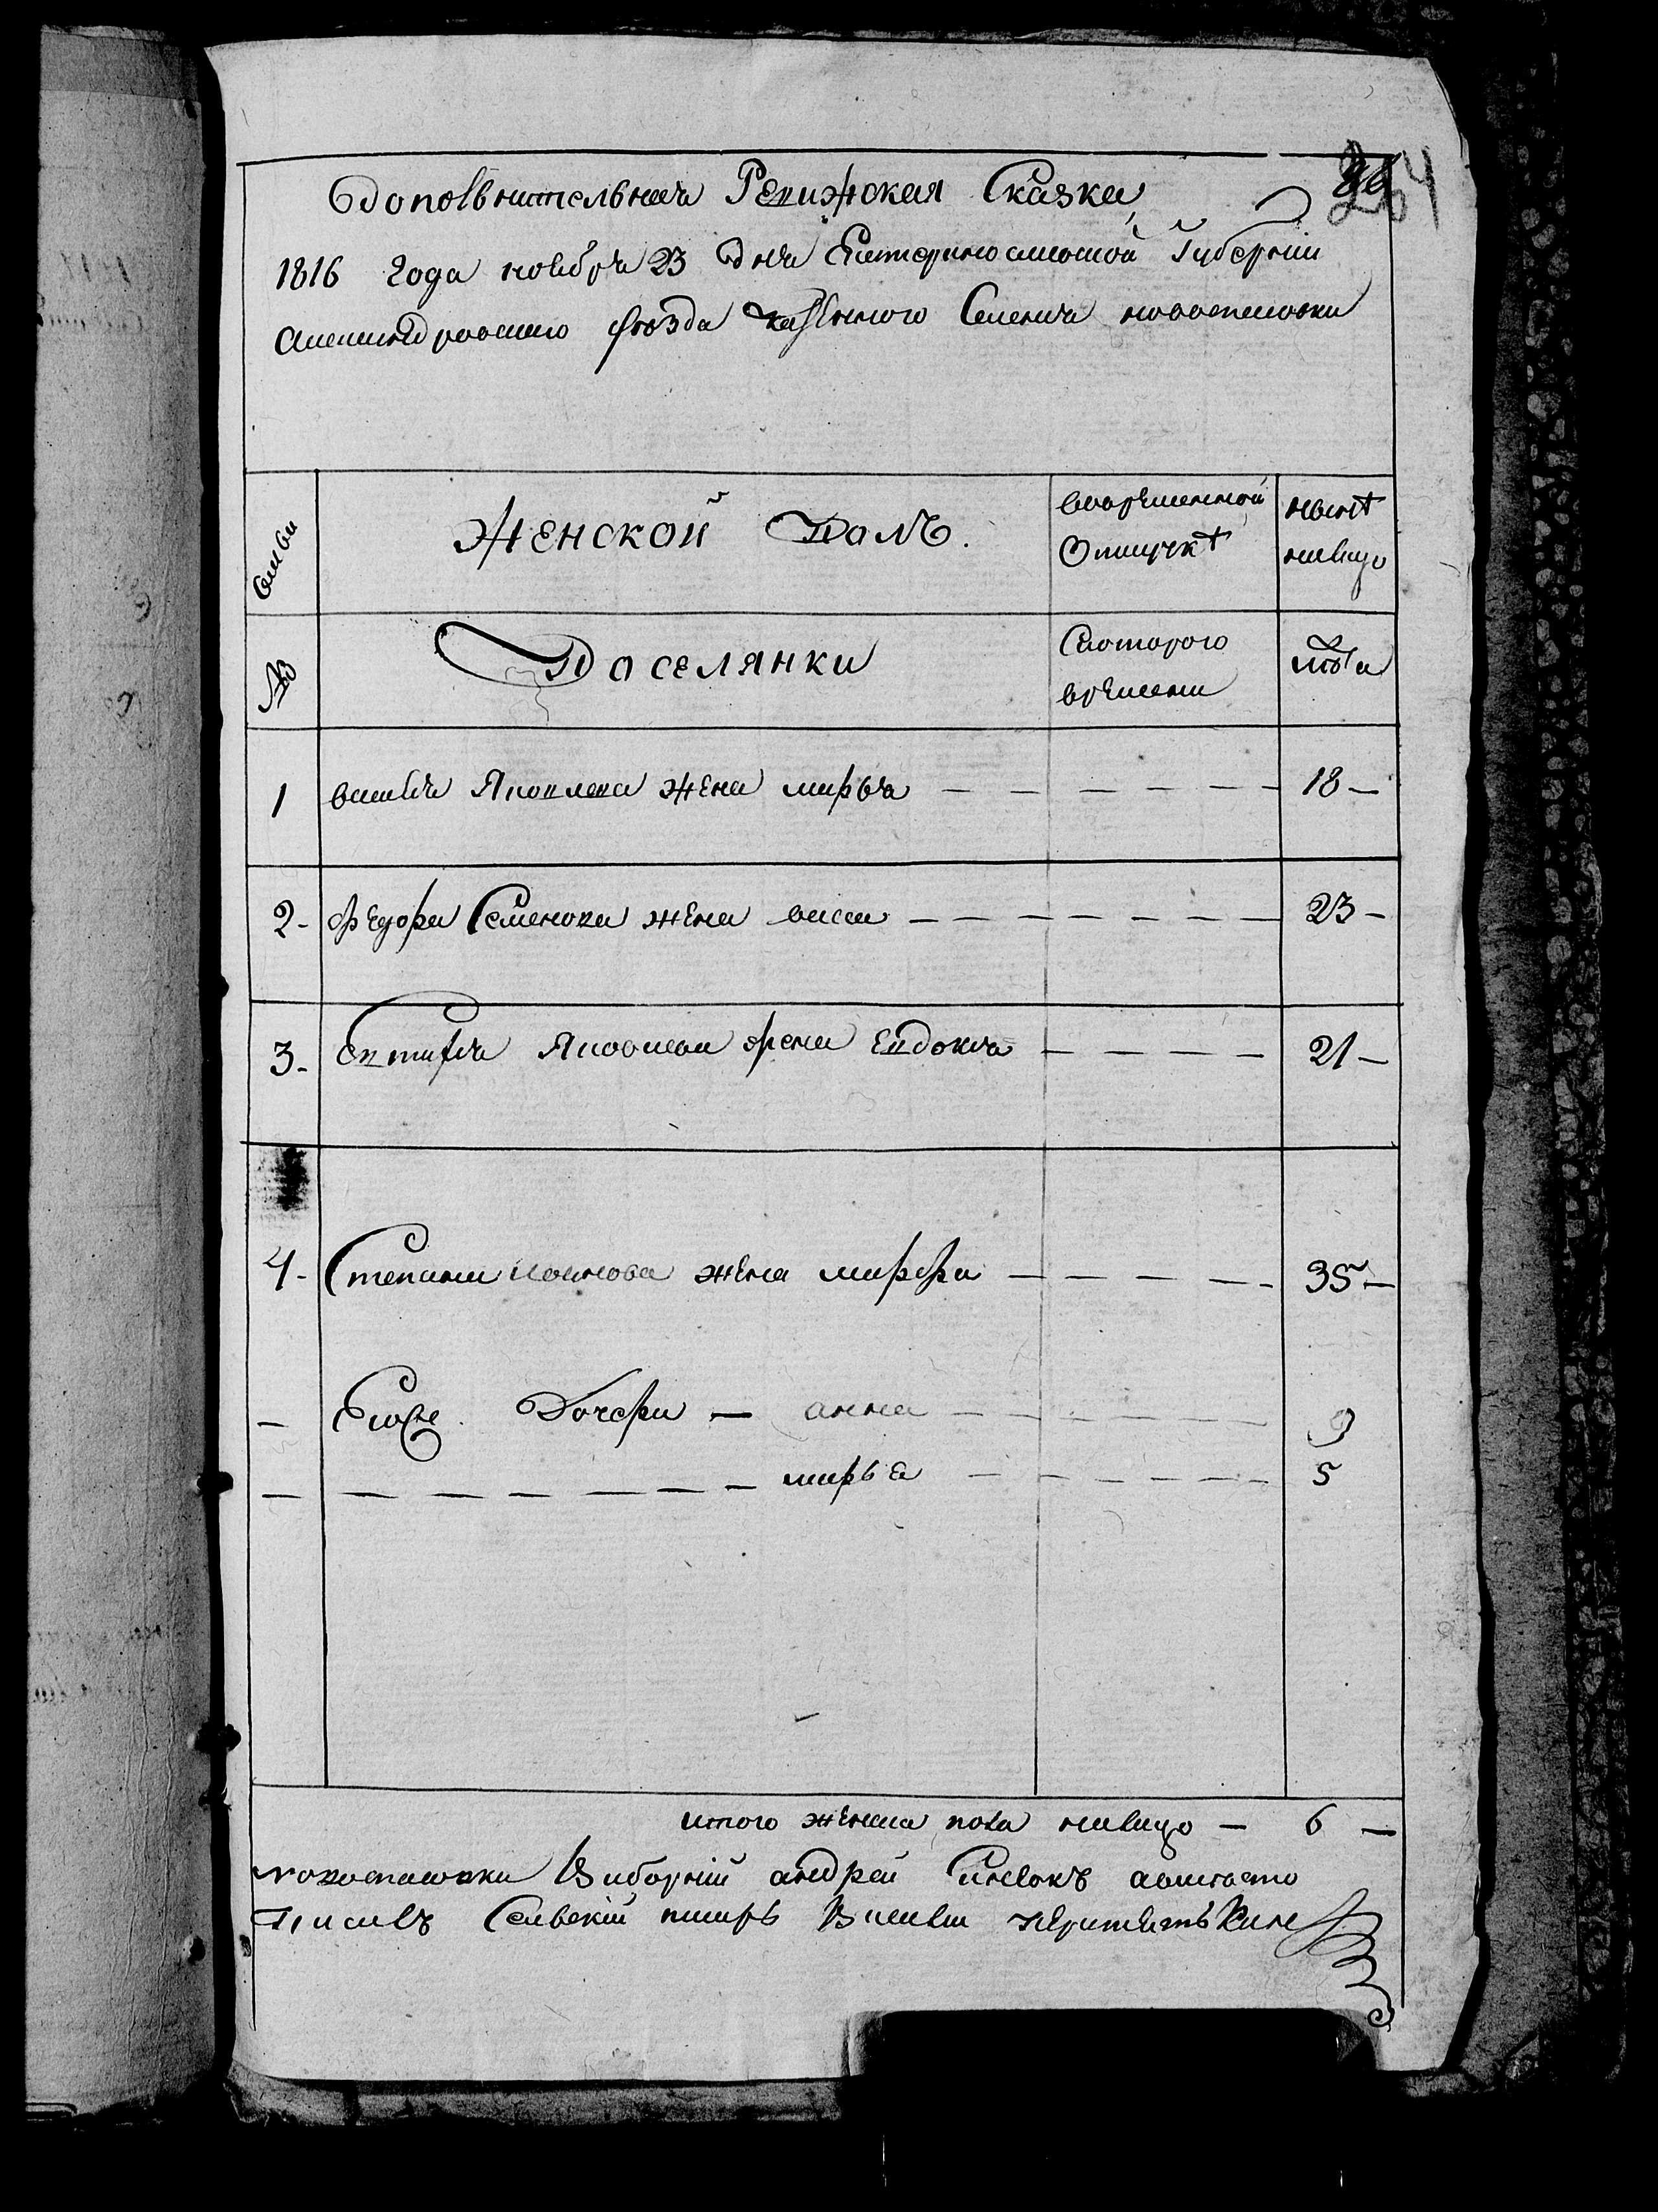 Допольнительная Ревижская Сказка
264
1816 года ноебря 23 дня Екатеринослаской Губернии
Александровского уезда казенного Селения новоспасовки
Семьи
Женской Полъ.
вовременной
Отлучкѣ
нынѣ
налицо
№
Поселянки
Скоторого
времени
лѣта
1 василя Яковлева жена марья — — — — — — — 18 —
2 - федора Семенова жена васса — — — — — — — — 23 —
3 - Евтифея Яковлева жена Евдокия — — — — 21 —
4 - Степана жена марфа — — — — 35 —
— Егоже Дочери — анна — — — — — 9
— — — — — — — — марья — — — — — 5
итого женска пола налицо — 6 —
новоспасовки Виборний андрей авместо
Писалъ Сельский писарь Василий